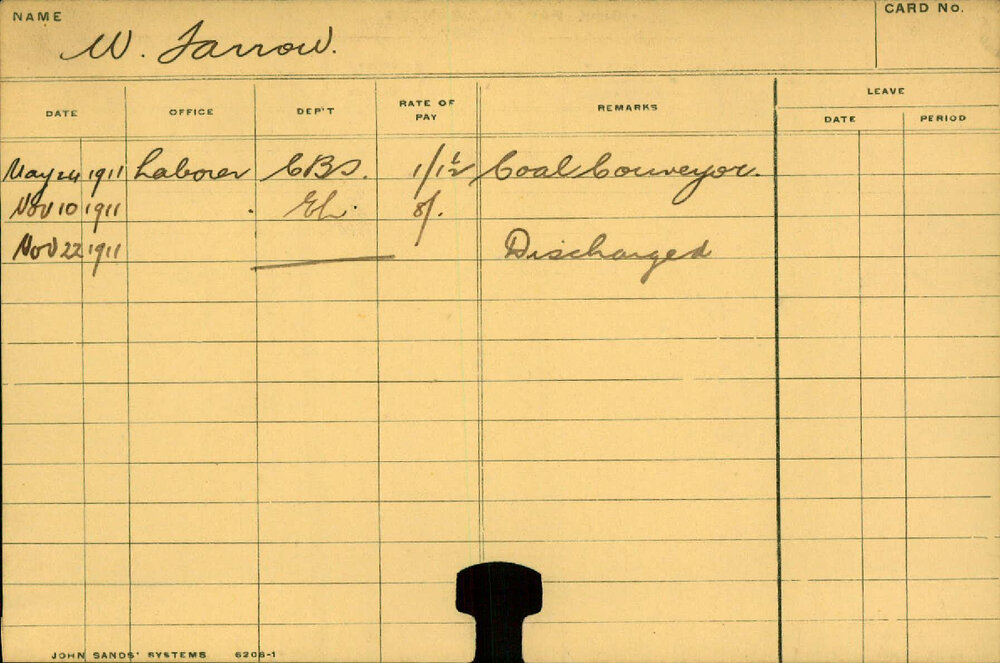 NAME
W. Farrow.
CARD No.
DATE OFFICE DEP'T RATE OF PAY REMARKS LEAVE
DATE PERIOD
May 24 1911 Laborer CBS. 1/1½ Coal Conveyor.
Nov 10 1911 . 8/.
Nov 22 1911 Discharged
JOHN SANDS' SYSTEMS 6208-1